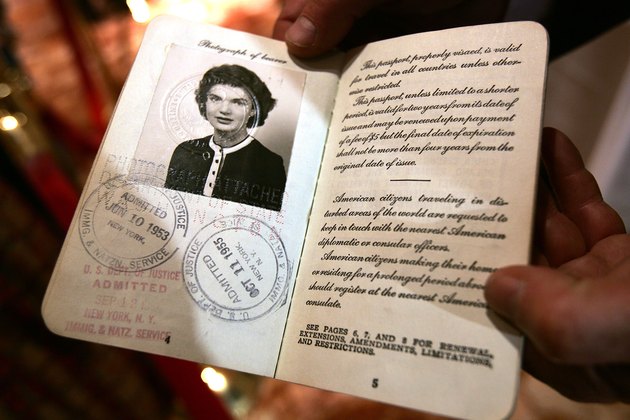 Photograph of bearer
PHOTOGRAPH ATTACHED
DEPARTMENT OF STATE
U. S. DEPT. OF JUSTICE
ADMITTED
JUN 10 1953
NEW YORK,
IMMG. & NATZN. SERVICE
U. S. DEPT. OF JUSTICE
ADMITTED
OCT 11 1955
NEW YORK
U. S. DEPT. OF JUSTICE
ADMITTED
SEP
NEW YORK, N. Y.
IMMIG. & NATZ. SERVICE
4
This passport, properly visaed, is valid
for travel in all countries unless other-
wise restricted.
This passport, unless limited to a shorter
period, is valid for two years from its date of
issue and may be renewed upon payment
of a fee of $5 but the final date of expiration
shall not be more than four years from the
original date of issue.
American citizens traveling in dis-
turbed areas of the world are requested to
keep in touch with the nearest American
diplomatic or consular officers.
American citizens making their home
or residing for a prolonged period abroad
should register at the nearest American
consulate.
SEE PAGES 6, 7, AND 8 FOR RENEWAL,
EXTENSIONS, AMENDMENTS, LIMITATIONS,
AND RESTRICTIONS.
5